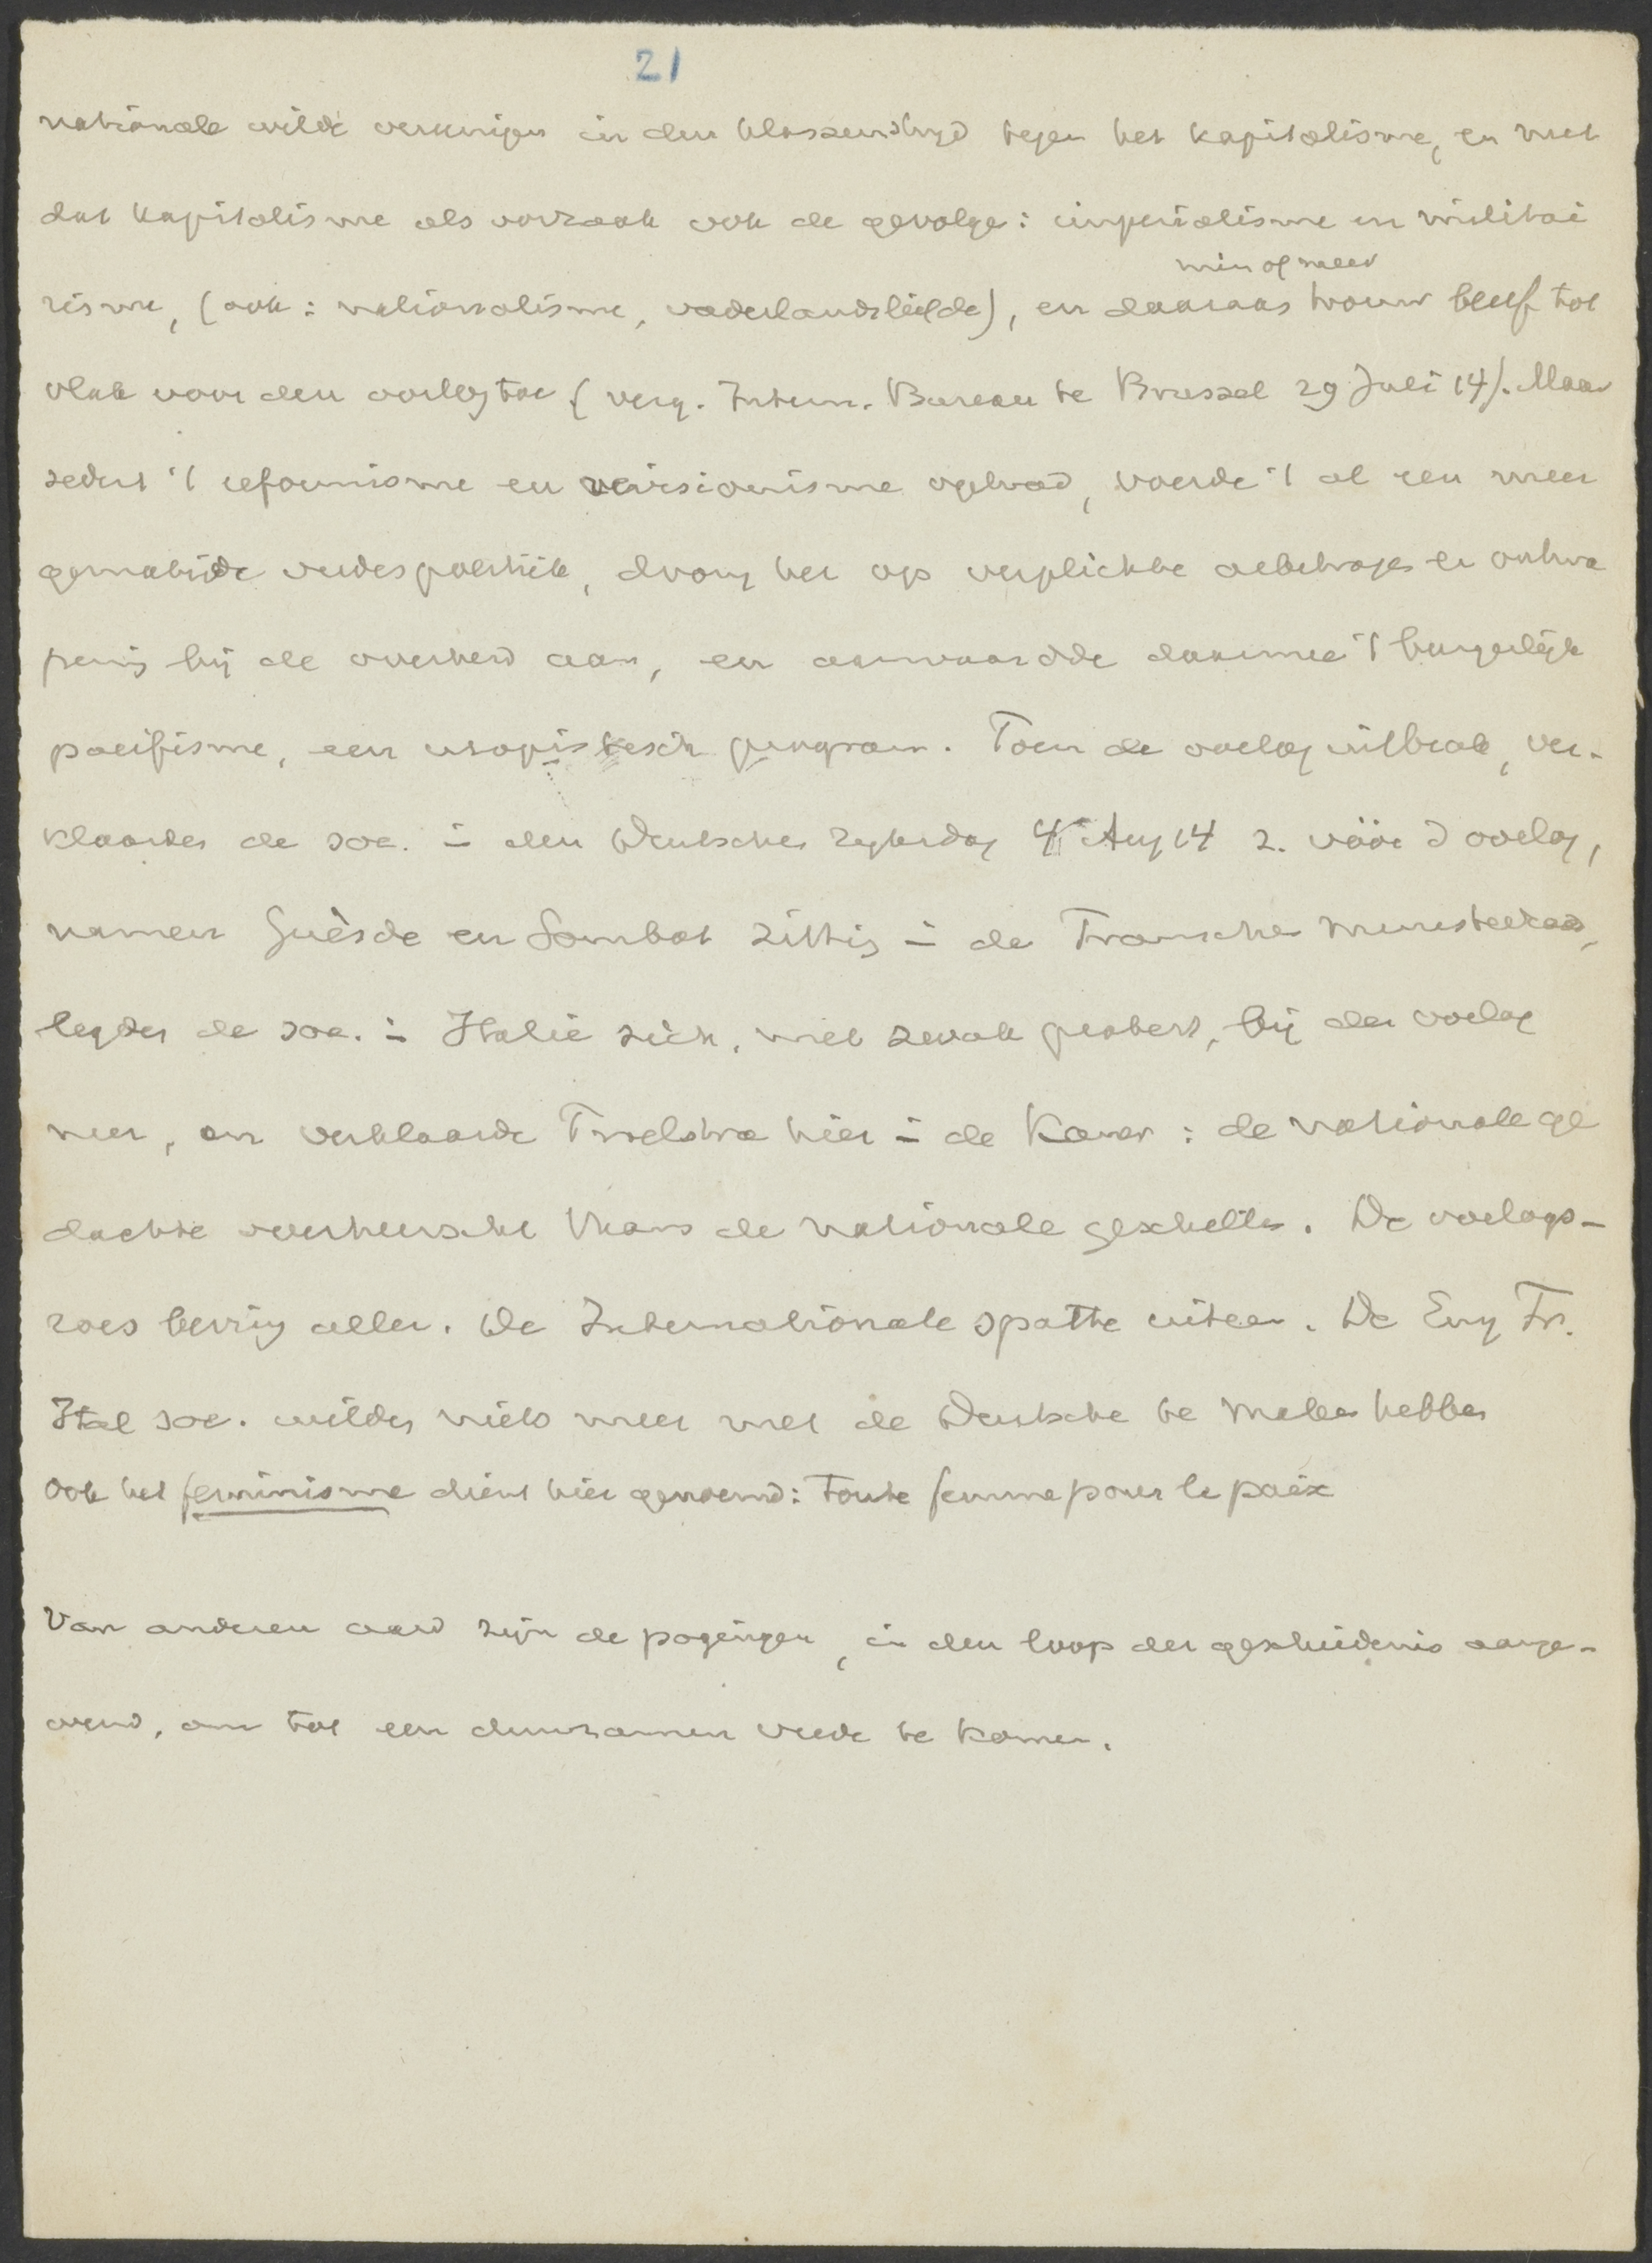 21
nationale wilde vereenigen in den klassenstrijd tegen het kapitalisme, en met
dat kapitalisme als oorzaak ook de gevolgen: imperialisme en militai
min of meer
risme, (ook: nationalisme, vaderlandsliefde), en daaraan trouw bleef tot
vlak voor den oorlog toe (verg. Intern. Bureau te Brussel 29 Juli 14). Maar
sedert 't reformisme en revisionisme optrad, voerde 't al een meer
gematigde vredespolitiek, drong het op verplichte arbitrage en ontwa
pening bij de overheid aan, en aanvaardde daarmee 't burgerlijk
pacifisme, een utopistisch program. Toen de oorlog uitbrak, ver-
klaarden de soc. in den Duitschen Rijksdag 4 Aug 14 z. vóór d oorlog,
namen Guèsde en Sembat zitting in de Fransche ministerraad,
legden de soc. in Italië zich, met zwak protest, bij den oorlog
neer, en verklaarde Troelstra hier in de Kamer: de nationale ge
dachte overheerscht thans de nationale geschillen. De oorlogs-
roes beving allen. De Internationale spatte uiteen. De Eng Fr.
Ital soc. wilden niets meer met de Duitsche te maken hebben
Ook het feminisme dient hier genoemd: Toute femme pour la paix
Van anderen aard zijn de pogingen, in den loop der geschiedenis aange-
wend, om tot een duurzamen vrede te komen.